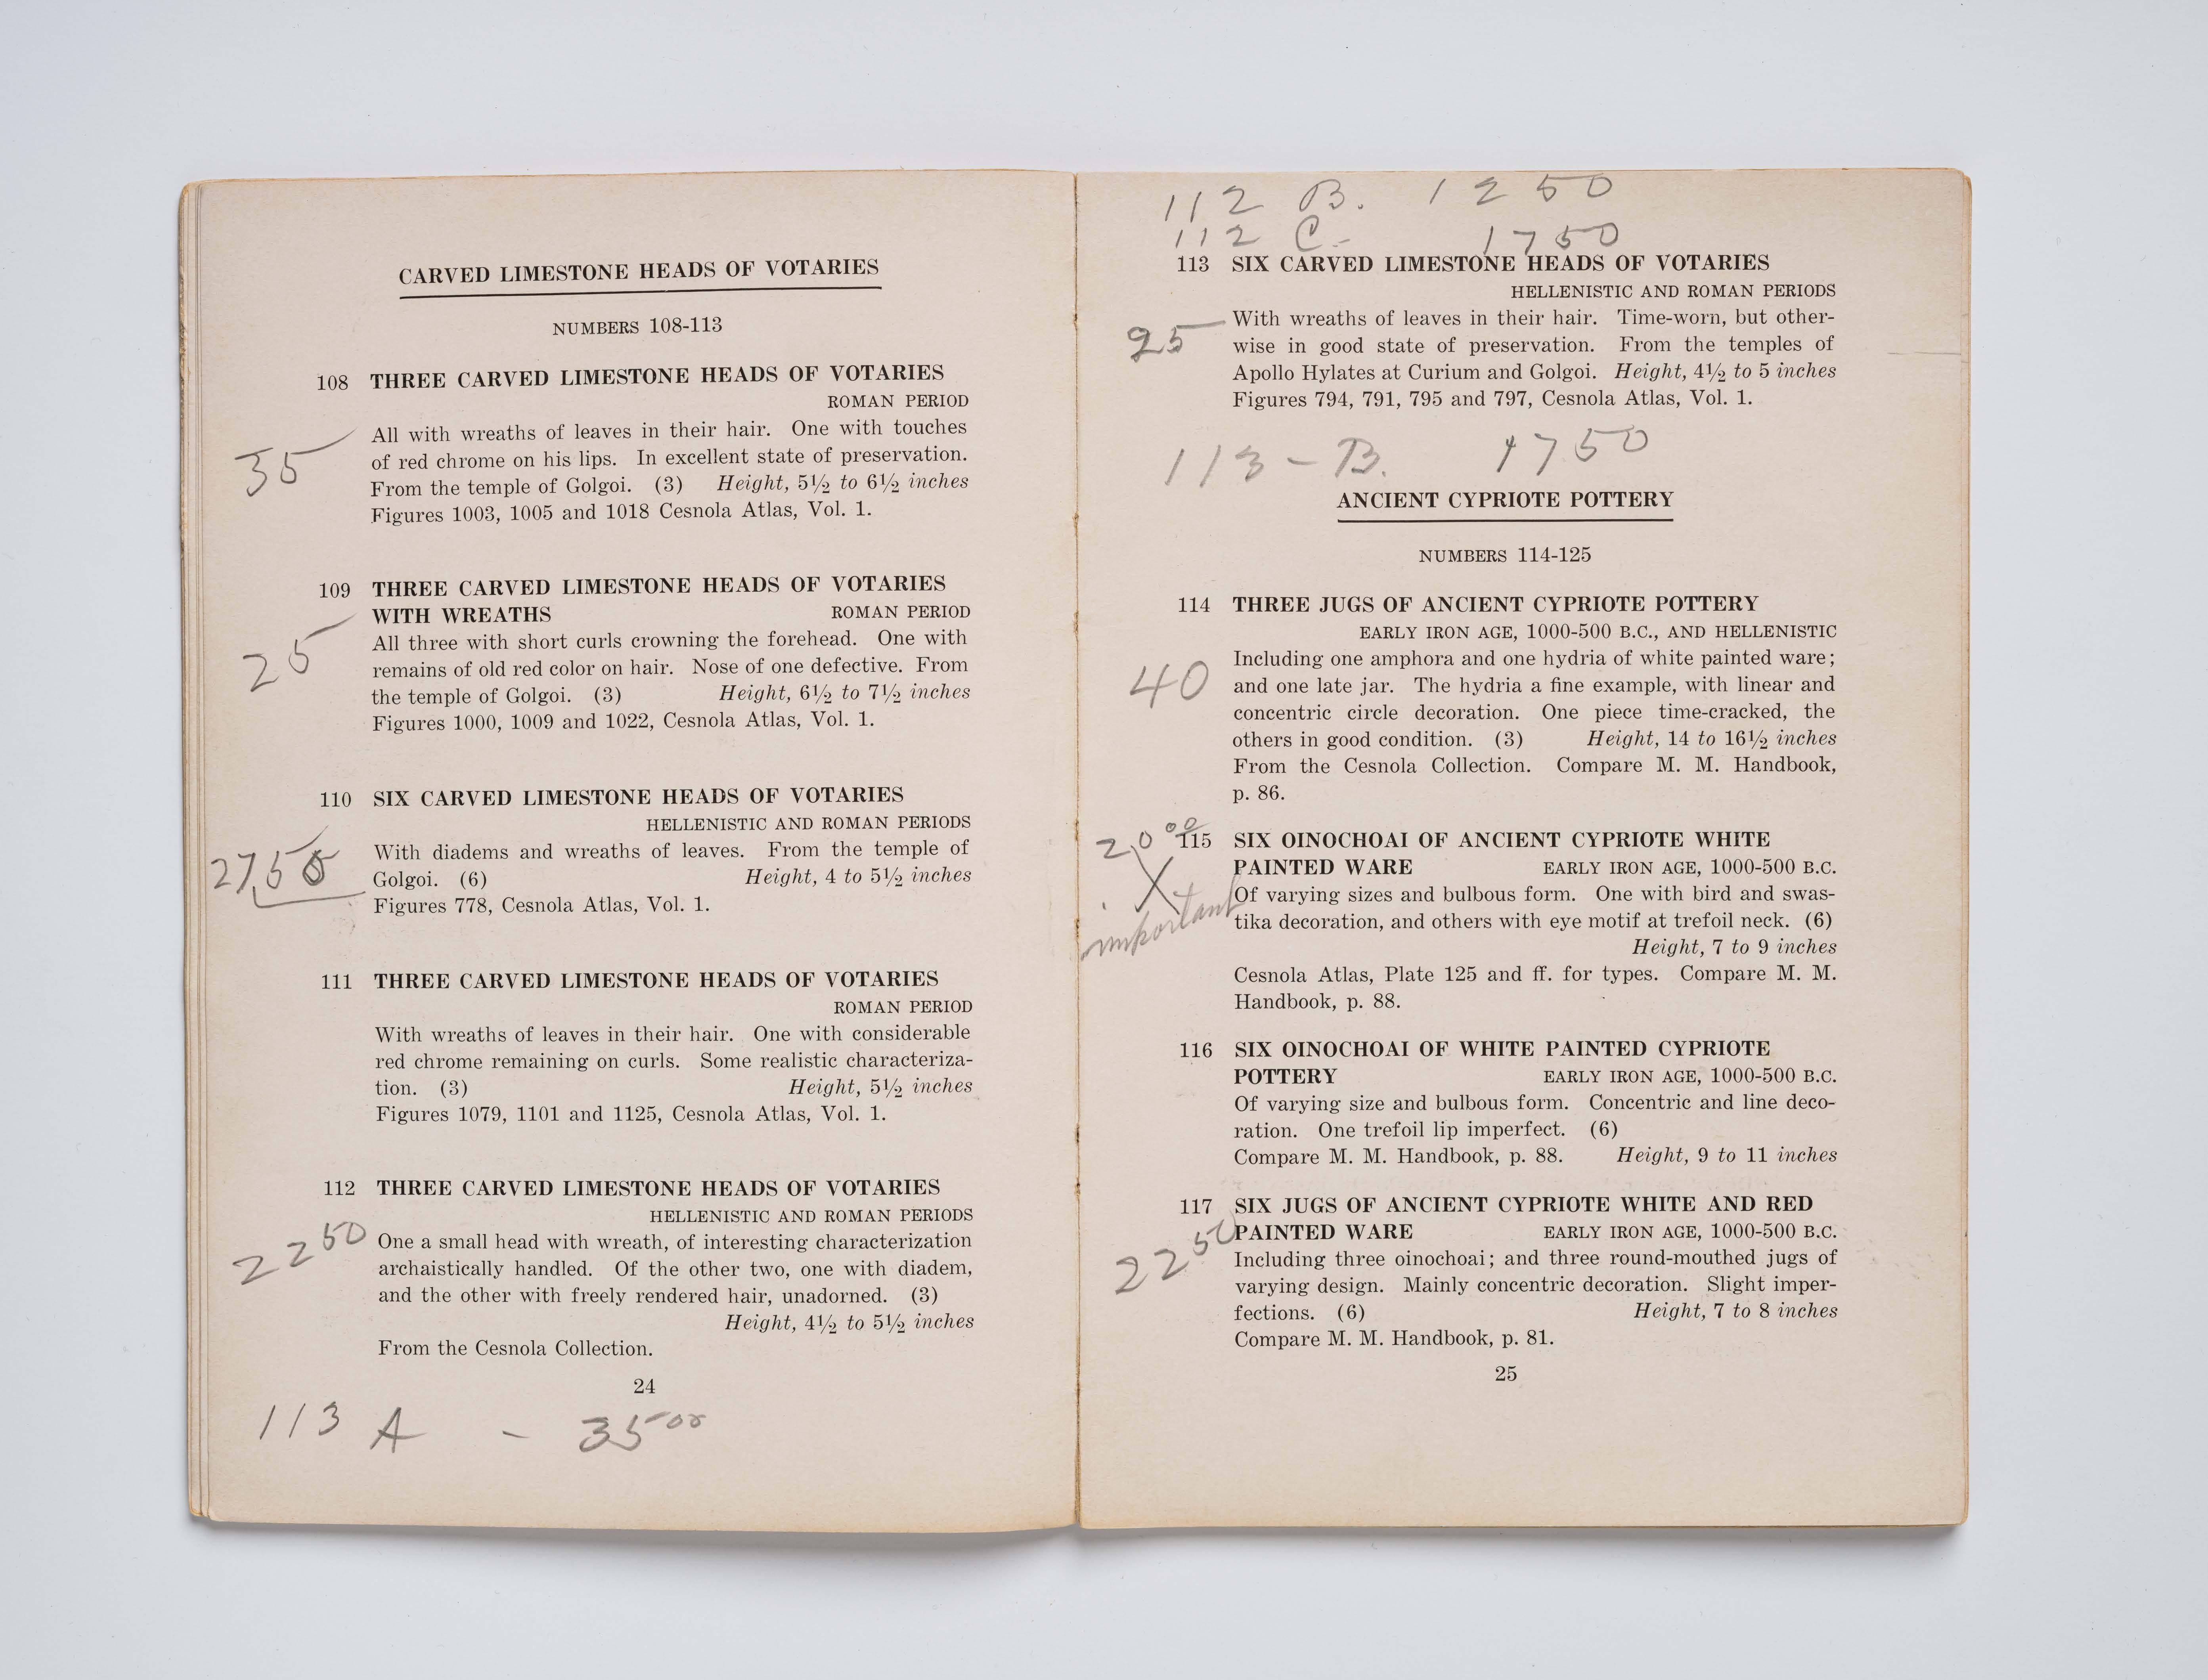 CARVED LIMESTONE HEADS OF VOTARIES
NUMBERS 108-113
108 THREE CARVED LIMESTONE HEADS OF VOTARIES
ROMAN PERIOD
35 All with wreaths of leaves in their hair. One with touches
of red chrome on his lips. In excellent state of preservation.
From the temple of Golgoi. (3) Height, 5½ to 6½ inches
Figures 1003, 1005 and 1018 Cesnola Atlas, Vol. 1.
109 THREE CARVED LIMESTONE HEADS OF VOTARIES
WITH WREATHS ROMAN PERIOD
25 All three with short curls crowning the forehead. One with
remains of old red color on hair. Nose of one defective. From
the temple of Golgoi. (3) Height, 6½ to 7½ inches
Figures 1000, 1009 and 1022, Cesnola Atlas, Vol. 1.
110 SIX CARVED LIMESTONE HEADS OF VOTARIES
HELLENISTIC AND ROMAN PERIODS
2750 With diadems and wreaths of leaves. From the temple of
Golgoi. (6) Height, 4 to 5½ inches
Figures 778, Cesnola Atlas, Vol. 1.
111 THREE CARVED LIMESTONE HEADS OF VOTARIES
ROMAN PERIOD
With wreaths of leaves in their hair. One with considerable
red chrome remaining on curls. Some realistic characteriza-
tion. (3) Height, 5½ inches
Figures 1079, 1101 and 1125, Cesnola Atlas, Vol. 1.
112 THREE CARVED LIMESTONE HEADS OF VOTARIES
HELLENISTIC AND ROMAN PERIODS
2250 One a small head with wreath, of interesting characterization
archaistically handled. Of the other two, one with diadem,
and the other with freely rendered hair, unadorned. (3)
Height, 4½ to 5½ inches
From the Cesnola Collection.
24
113 A - 3500
112 B. 1250
112 C- 1750
113 SIX CARVED LIMESTONE HEADS OF VOTARIES
HELLENISTIC AND ROMAN PERIODS
25 With wreaths of leaves in their hair. Time-worn, but other-
wise in good state of preservation. From the temples of
Apollo Hylates at Curium and Golgoi. Height, 4½ to 5 inches
Figures 794, 791, 795 and 797, Cesnola Atlas, Vol. 1.
113-B. 1750
ANCIENT CYPRIOTE POTTERY
NUMBERS 114-125
114 THREE JUGS OF ANCIENT CYPRIOTE POTTERY
EARLY IRON AGE, 1000-500 B.C., AND HELLENISTIC
Including one amphora and one hydria of white painted ware;
40 and one late jar. The hydria a fine example, with linear and
concentric circle decoration. One piece time-cracked, the
others in good condition. (3) Height, 14 to 16½ inches
From the Cesnola Collection. Compare M. M. Handbook,
p. 86.
2000 115 SIX OINOCHOAI OF ANCIENT CYPRIOTE WHITE
X PAINTED WARE EARLY IRON AGE, 1000-500 B.C.
Of varying sizes and bulbous form. One with bird and swas-
important tika decoration, and others with eye motif at trefoil neck. (6)
Height, 7 to 9 inches
Cesnola Atlas, Plate 125 and ff. for types. Compare M. M.
Handbook, p. 88.
116 SIX OINOCHOAI OF WHITE PAINTED CYPRIOTE
POTTERY EARLY IRON AGE, 1000-500 B.C.
Of varying size and bulbous form. Concentric and line deco-
ration. One trefoil lip imperfect. (6)
Compare M. M. Handbook, p. 88. Height, 9 to 11 inches
117 SIX JUGS OF ANCIENT CYPRIOTE WHITE AND RED
PAINTED WARE EARLY IRON AGE, 1000-500 B.C.
2250 Including three oinochoai; and three round-mouthed jugs of
varying design. Mainly concentric decoration. Slight imper-
fections. (6) Height, 7 to 8 inches
Compare M. M. Handbook, p. 81.
25